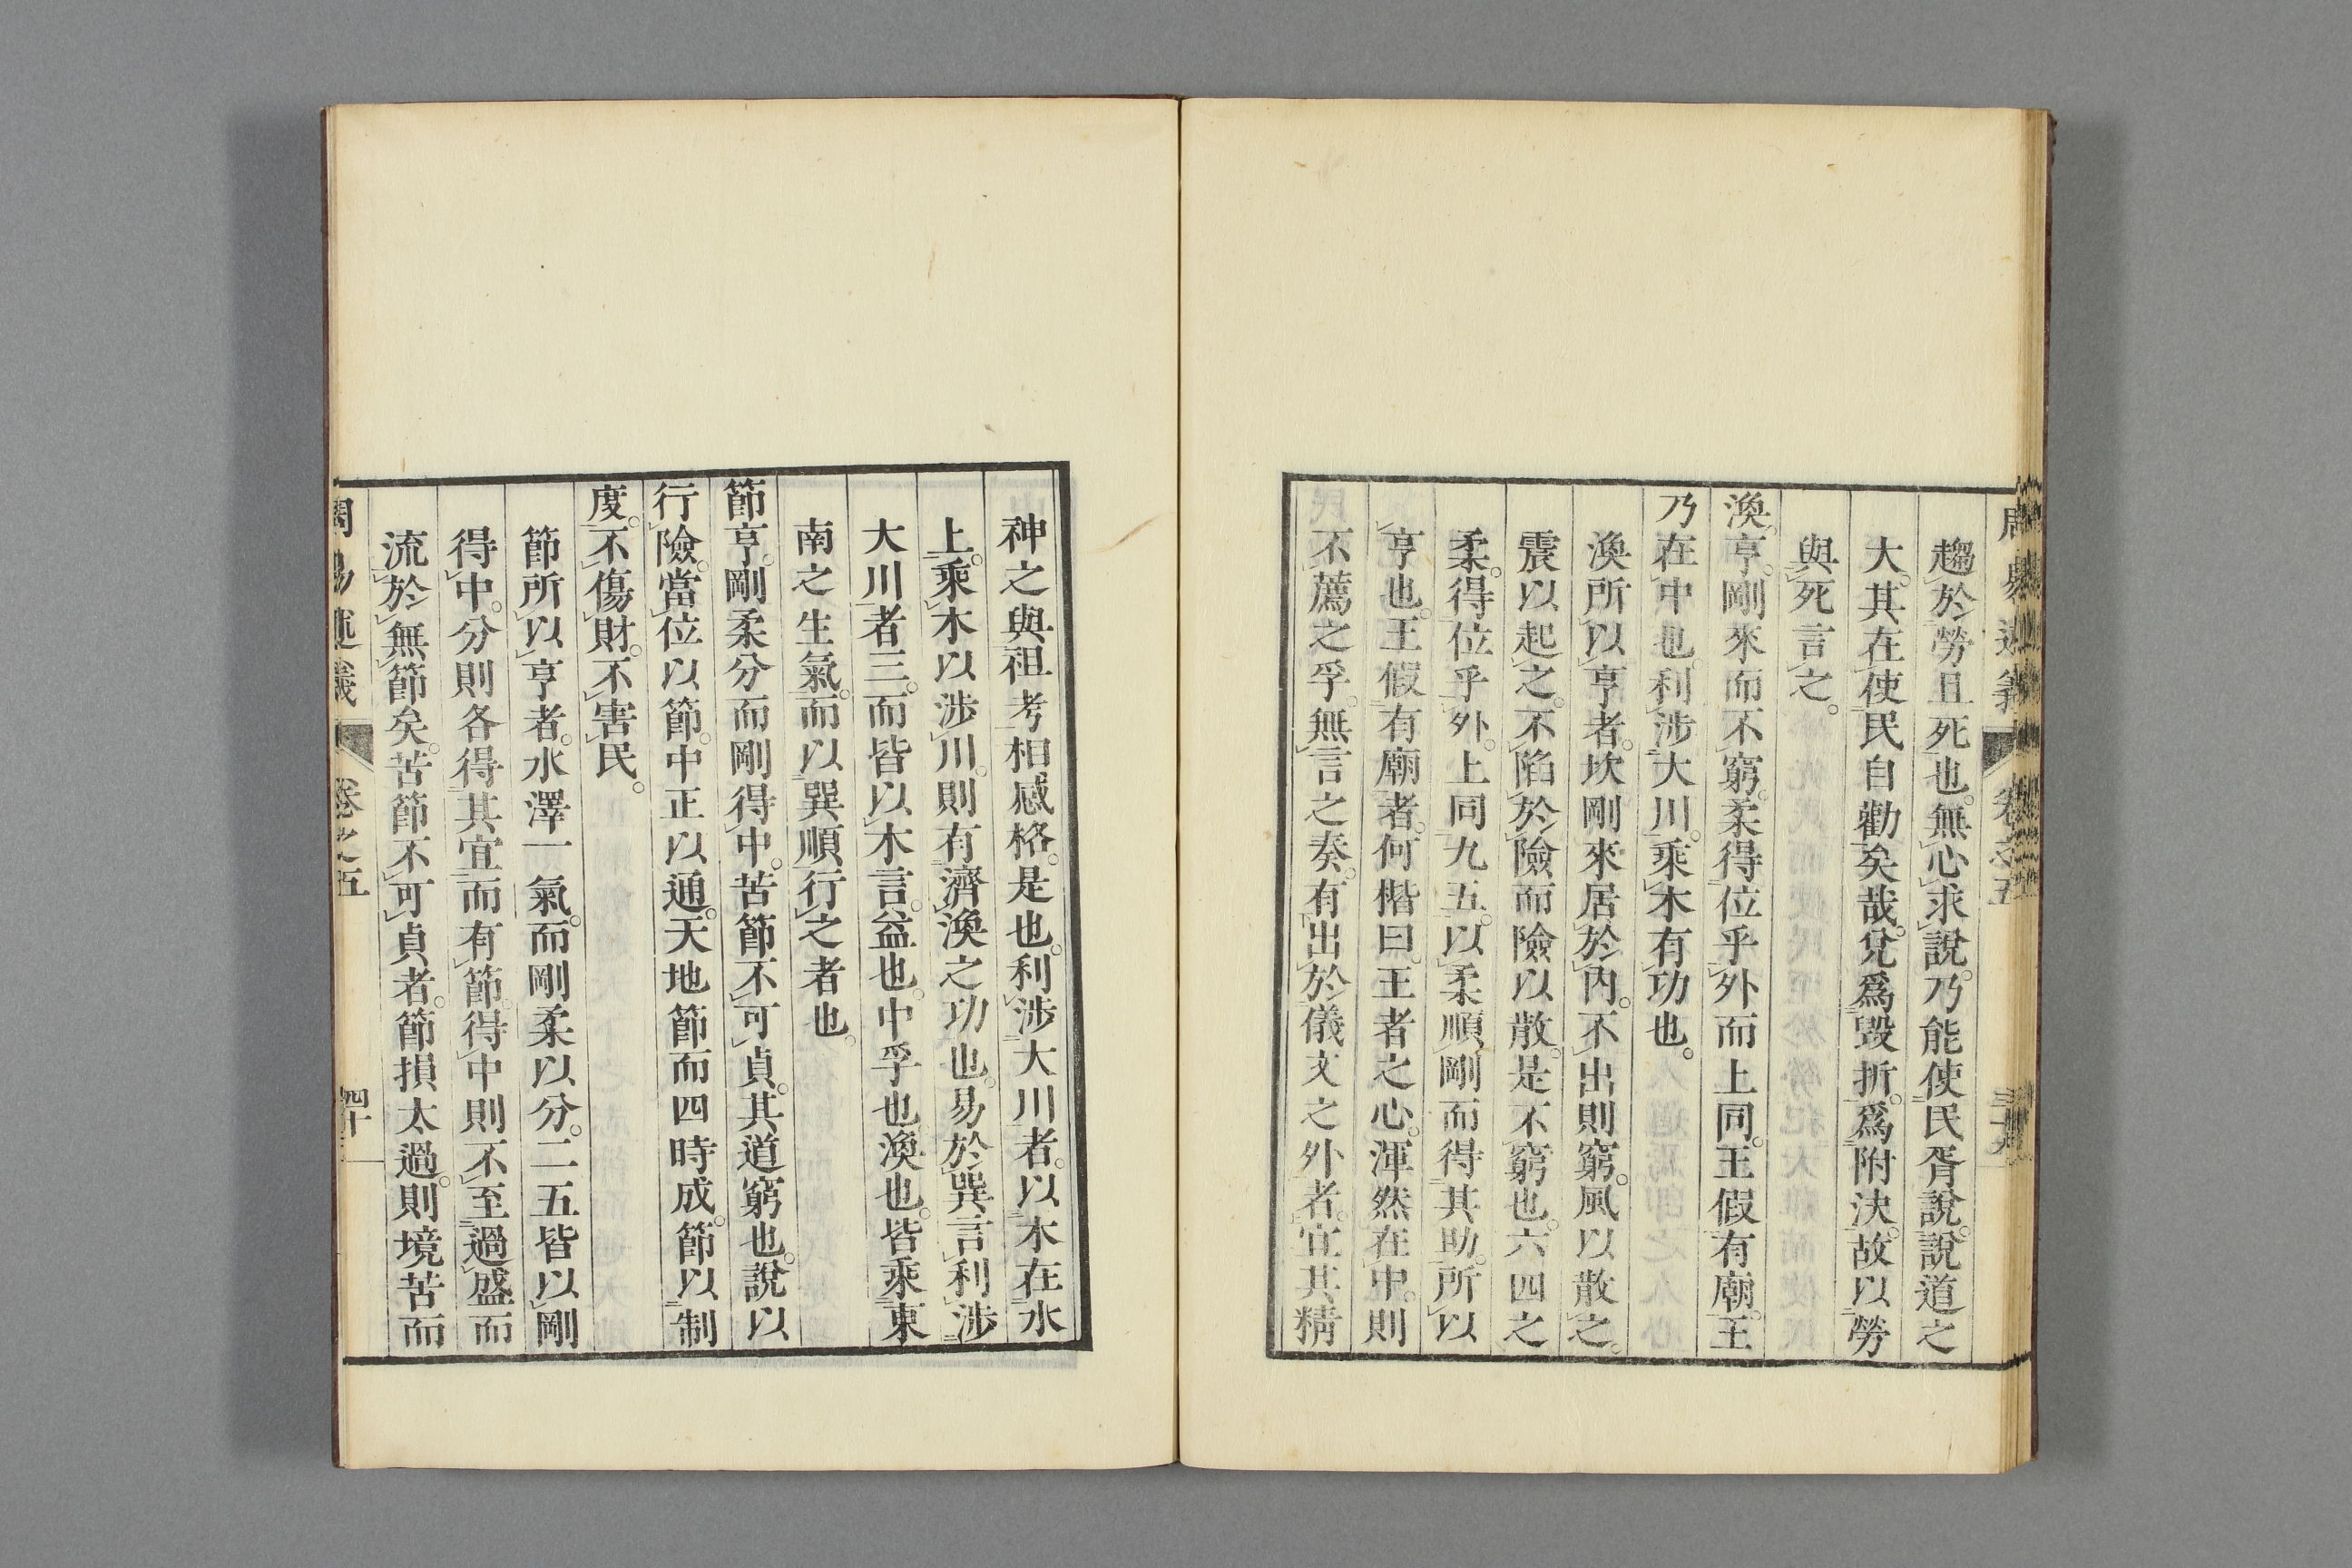 趨於勞且死也。無心求說。乃能使民胥說。說道之
大。其在使民自勸矣哉。兌爲毀折。爲附決。故以勞
與死言之。
渙。亨。剛來而不窮。柔得位乎外而上同。王假有廟。王
乃在中也。利涉大川。乘木有功也。
渙所以亨者。坎剛來居於內。不出則窮。風以散之。
震以起之。不陷於險而險以散。是不窮也。六四之
柔。得位乎外。上同九五。以柔順剛而得其助。所以
亨也。王假有廟者。何楷曰。王者之心。渾然在中。則
不薦之孚。無言之奏。有出於儀文之外者。宜其精
神之與祖考相感格。是也。利涉大川者。以木在水
上。乘木以涉川。則有濟渙之功也。易於巽言利涉
大川者三。而皆以木言。益也。中孚也。渙也。皆乘東
南之生氣。而以巽順行之者也。
節亨。剛柔分而剛得中。苦節不可貞。其道窮也。說以
行險。當位以節。中正以通。天地節而四時成。節以制
度。不傷財。不害民。
節所以亨者。水澤一氣。而剛柔以分。二五皆以剛
得中。分則各得其宜而有節。得中則不至過盛而
流於無節矣。苦節不可貞者。節損太過。則境苦而
卷之五
四十